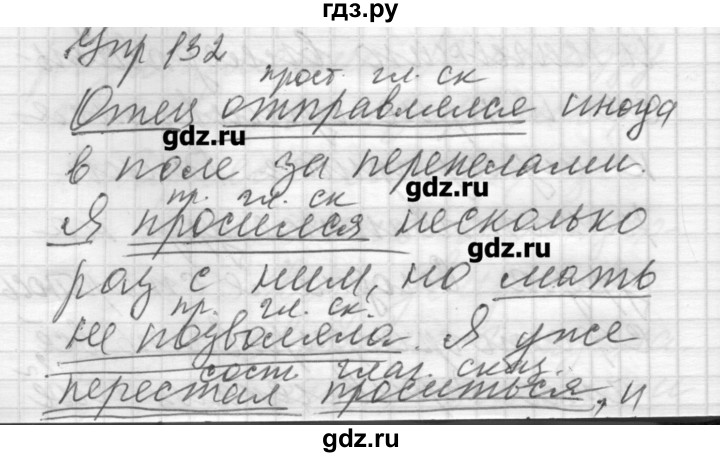 гдз.ру
Упр 132
прост. гл. ск
Отец отправлялся иногда
gdz.ru
в поле за перепелами.
gdz.ru
пр. гл. ск
Я просился несколько
gdz.ru
раз с ним, но мать
пр. гл. ск.
не позволяла. Я уже
сост. глаг. сказ.
перестал проситься, и
gdz.ru